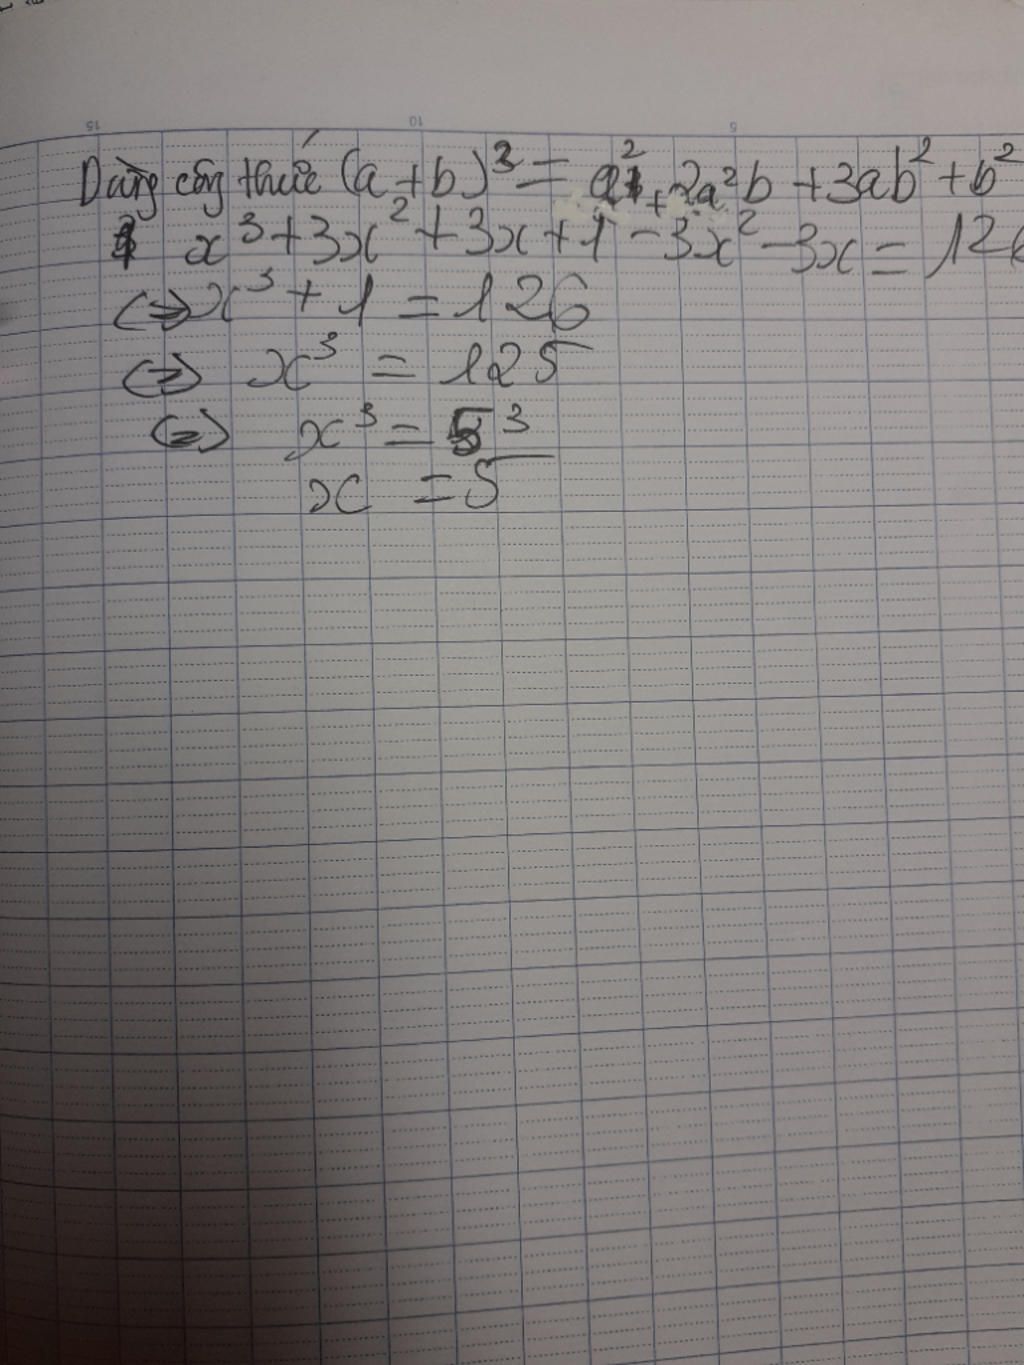 Dùng công thức (a+b)³ = a² + 2a²b + 3ab² + b²
x³ + 3x² + 3x + 1 - 3x² - 3x = 126
(=) x³ + 1 = 126
(=) x³ = 125
(=) x³ = 5³
x = 5